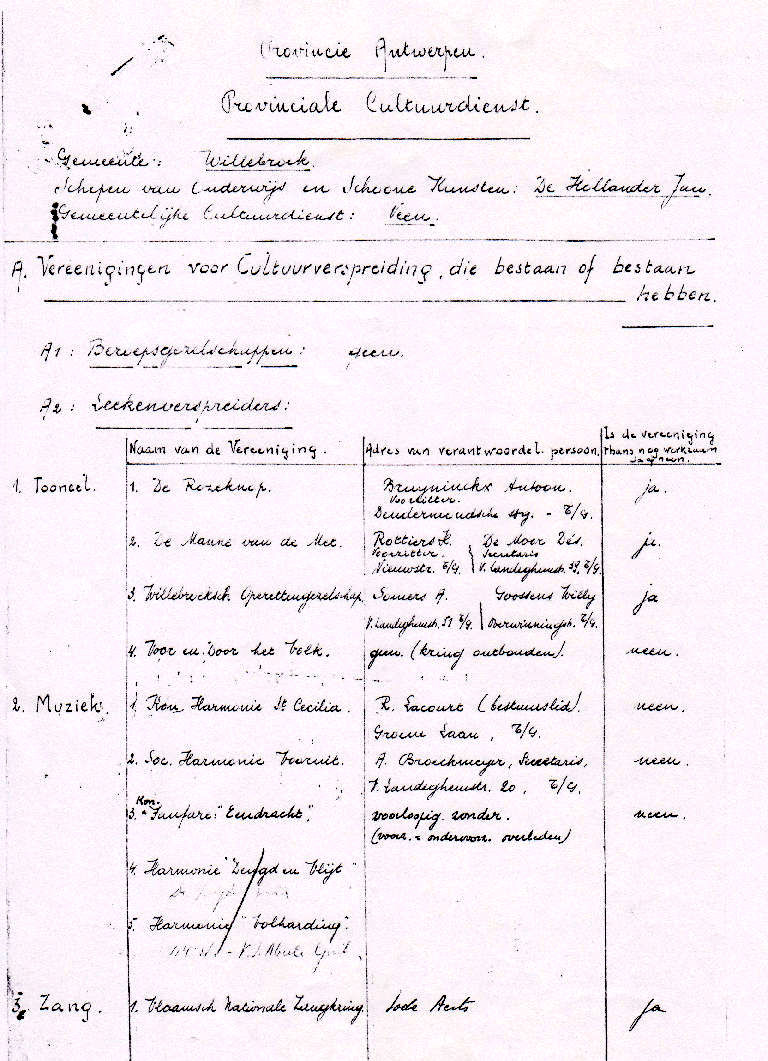 Provincie Antwerpen.
Provinciale Cultuurdienst.
Gemeente: Willebroek.
Schepen van Onderwijs en Schoone Kunsten: De Hollander Jan.
Gemeentelijke Cultuurdienst: Neen.
A. Vereenigingen voor Cultuurverspreiding, die bestaan of bestaan
hebben.
A1: Beroepsgezelschappen: geen.
A2: Leekenverspreiders:
Naam van de Vereeniging. Adres van verantwoordel. persoon. Is de vereeniging
thans nog werkzaam
ja of neen.
1. Tooneel. 1. De Rozeknop. Bruyninckx Antoon. ja.
Voorzitter.
Dendermondsche stg. - T/G.
2. De Manne van de Met. Rottiers K. De Moor Dés. ja.
Voorzitter. Secretaris
Nieuwstr. T/G. V. Landeghemstr. 59, T/G.
3. Willebroeksch Operettengezelschap. Somers A. Goossens Willy ja
V. Landeghemstr. 51 T/G. Overwinningstr. T/G.
4. Voor en Door het Volk. geen (kring ontbonden). neen.
2. Muziek. 1. Kon. Harmonie St Cecilia. R. Lacourt (bestuurslid). neen.
Groene Laan, T/G.
2. Soc. Harmonie Vooruit. A. Broeckmeyer, Secretaris, neen.
V. Landeghemstr. 20, T/G.
Kon.
3. Fanfare: "Eendracht". voorloopig zonder. neen.
(voorz. - ondervoorz. overleden)
4. Harmonie "Deugd en Vlijt"
5. Harmonie "Volharding".
3. Zang. 1. Vlaamsch Nationale Zangkring. Lode Aerts ja